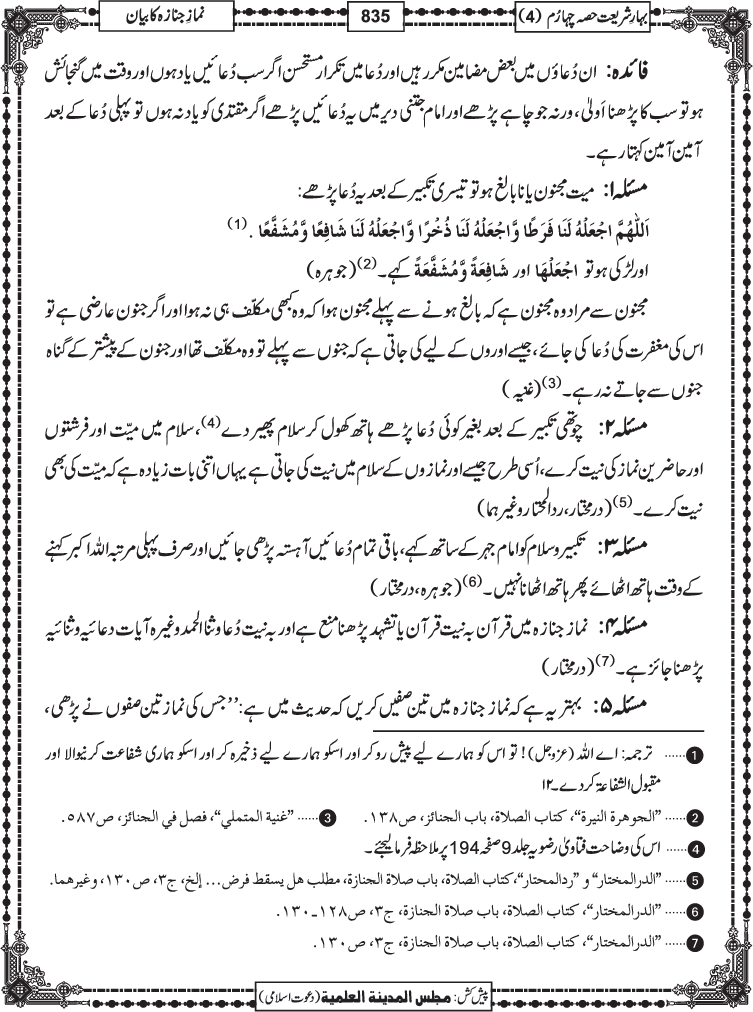 بہارِشریعت حصہ چہارم (4)
835
نمازِ جنازہ کا بیان
فائدہ: ان دُعاؤں میں بعض مضامین مکرر ہیں اور دُعا میں تکرار مستحسن اگر سب دُعائیں یاد ہوں اور وقت میں گنجائش
ہو تو سب کا پڑھنا اَولیٰ، ورنہ جو چاہے پڑھے اور امام جتنی دیر میں یہ دُعائیں پڑھے اگر مقتدی کو یاد نہ ہوں تو پہلی دُعا کے بعد
آمین آمین کہتا رہے۔
مسئلہ ۱: میت مجنون یا نابالغ ہو تو تیسری تکبیر کے بعد یہ دُعا پڑھے:
اَللّٰهُمَّ اجْعَلْهُ لَنَا فَرَطًا وَّاجْعَلْهُ لَنَا ذُخْرًا وَّاجْعَلْهُ لَنَا شَافِعًا وَّمُشَفَّعًا . (1)
اور لڑکی ہو تو اجْعَلْهَا اور شَافِعَةً وَّمُشَفَّعَةً کہے۔ (2) (جوہرہ)
مجنون سے مراد وہ مجنون ہے کہ بالغ ہونے سے پہلے مجنون ہوا کہ وہ کبھی مکلّف ہی نہ ہوا اور اگر جنون عارضی ہے تو
اس کی مغفرت کی دُعا کی جائے، جیسے اوروں کے لیے کی جاتی ہے کہ جنوں سے پہلے تو وہ مکلّف تھا اور جنون کے پیشتر کے گناہ
جنوں سے جاتے نہ رہے۔ (3) (غنیہ)
مسئلہ ۲: چوتھی تکبیر کے بعد بغیر کوئی دُعا پڑھے ہاتھ کھول کر سلام پھیر دے (4)، سلام میں میّت اور فرشتوں
اور حاضرین نماز کی نیت کرے، اُسی طرح جیسے اور نمازوں کے سلام میں نیت کی جاتی ہے یہاں اتنی بات زیادہ ہے کہ میّت کی بھی
نیت کرے۔ (5) (درمختار، ردالمحتار وغیرہما)
مسئلہ ۳: تکبیر و سلام کو امام جہر کے ساتھ کہے، باقی تمام دُعائیں آہستہ پڑھی جائیں اور صرف پہلی مرتبہ اللہ اکبر کہنے
کے وقت ہاتھ اٹھائے پھر ہاتھ اٹھانا نہیں۔ (6) (جوہرہ، درمختار)
مسئلہ ۴: نماز جنازہ میں قرآن بہ نیت قرآن یا تشہد پڑھنا منع ہے اور بہ نیت دُعا و ثنا الحمد وغیرہ آیات دعائیہ و ثنائیہ
پڑھنا جائز ہے۔ (7) (درمختار)
مسئلہ ۵: بہتر یہ ہے کہ نماز جنازہ میں تین صفیں کریں کہ حدیث میں ہے: ’’جس کی نماز تین صفوں نے پڑھی،
1 ...... ترجمہ: اے اللہ (عزوجل)! تو اس کو ہمارے لیے پیش رو کر اور اسکو ہمارے لیے ذخیرہ کر اور اسکو ہماری شفاعت کرنیوالا اور
مقبول الشفاعۃ کردے۔۱۲
2 ...... "الجوهرة النيرة"، كتاب الصلاة، باب الجنائز، ص۱۳۸. 3 ...... "غنية المتملي"، فصل في الجنائز، ص۵۸۷.
4 ...... اس کی وضاحت فتاویٰ رضویہ جلد 9 صفحہ 194 پر ملاحظہ فرما لیجئے۔
5 ...... "الدرالمختار" و "ردالمحتار"، كتاب الصلاة، باب صلاة الجنازة، مطلب هل يسقط فرض... إلخ، ج۳، ص۱۳۰، وغيرهما.
6 ...... "الدرالمختار"، كتاب الصلاة، باب صلاة الجنازة، ج۳، ص۱۲۸ـ۱۳۰.
7 ...... "الدرالمختار"، كتاب الصلاة، باب صلاة الجنازة، ج۳، ص۱۳۰.
پیش کش: مجلس المدينة العلمية (دعوت اسلامی)